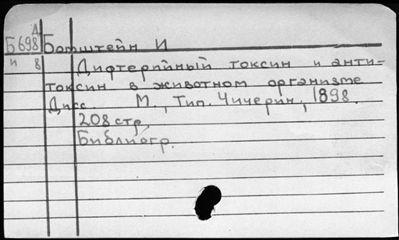 Д
Б698 Бомштейн И
и 8 Дифтерийный токсин и анти-
токсин в животном организме
Дисс М., Тип. Чичерин, 1898.
208 стр.
Библиогр.